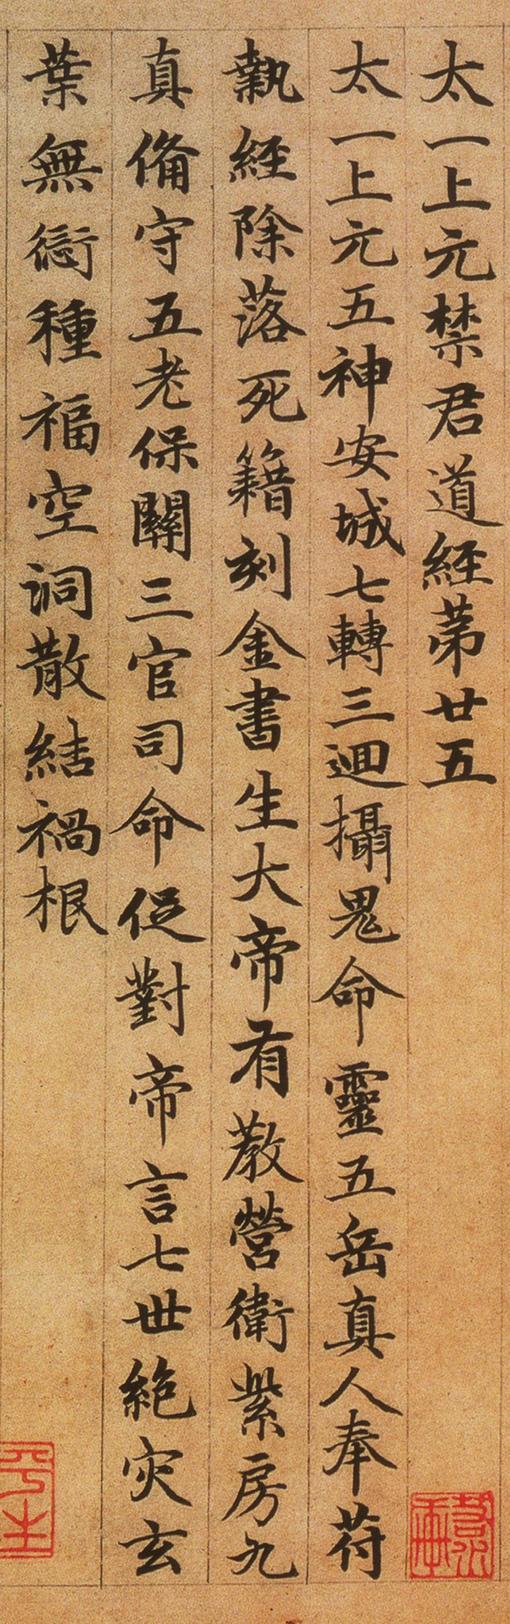 太一上元禁君道經苐廿五
太一上元五神安城七轉三迴攝鬼命靈五岳真人奉苻
執經除落死籍刻金書生大帝有教營衛紫房九
真俻守五老保關三官司命促對帝言七世絶灾玄
葉無愆種福空洞散結禍根